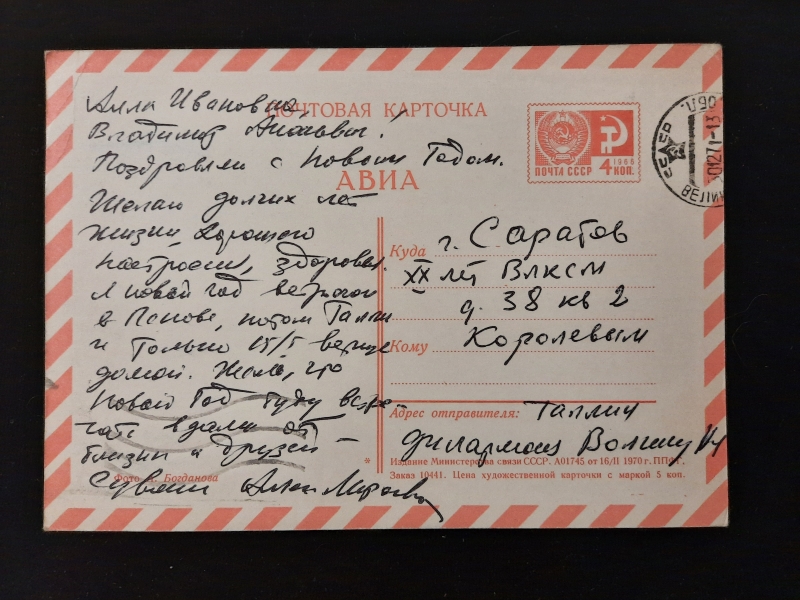 Алла Ивановна,
ПОЧТОВАЯ КАРТОЧКА
Владимир
Поздравляю с Новым Годом.
АВИА
Желаю долгих лет
жизни, хорошего
настроения, здоровья.
Новый год встречаю
в , потом Таллин
и только 15/I вернусь
домой. Жаль, что
Новый Год буду встре-
чать вдали от
близких и друзей –
Фото Богданова
ПОЧТА СССР
1966
4 КОП.
СССР
301271-13
Куда
г. Саратов
XX лет ВЛКСМ
д. 38 кв 2
Кому
Королевым
Адрес отправителя:
Таллин
филармония
* Издание Министерства связи СССР. А01745 от 16/II 1970 г.
Заказ 10441. Цена художественной карточки с маркой 5 коп.